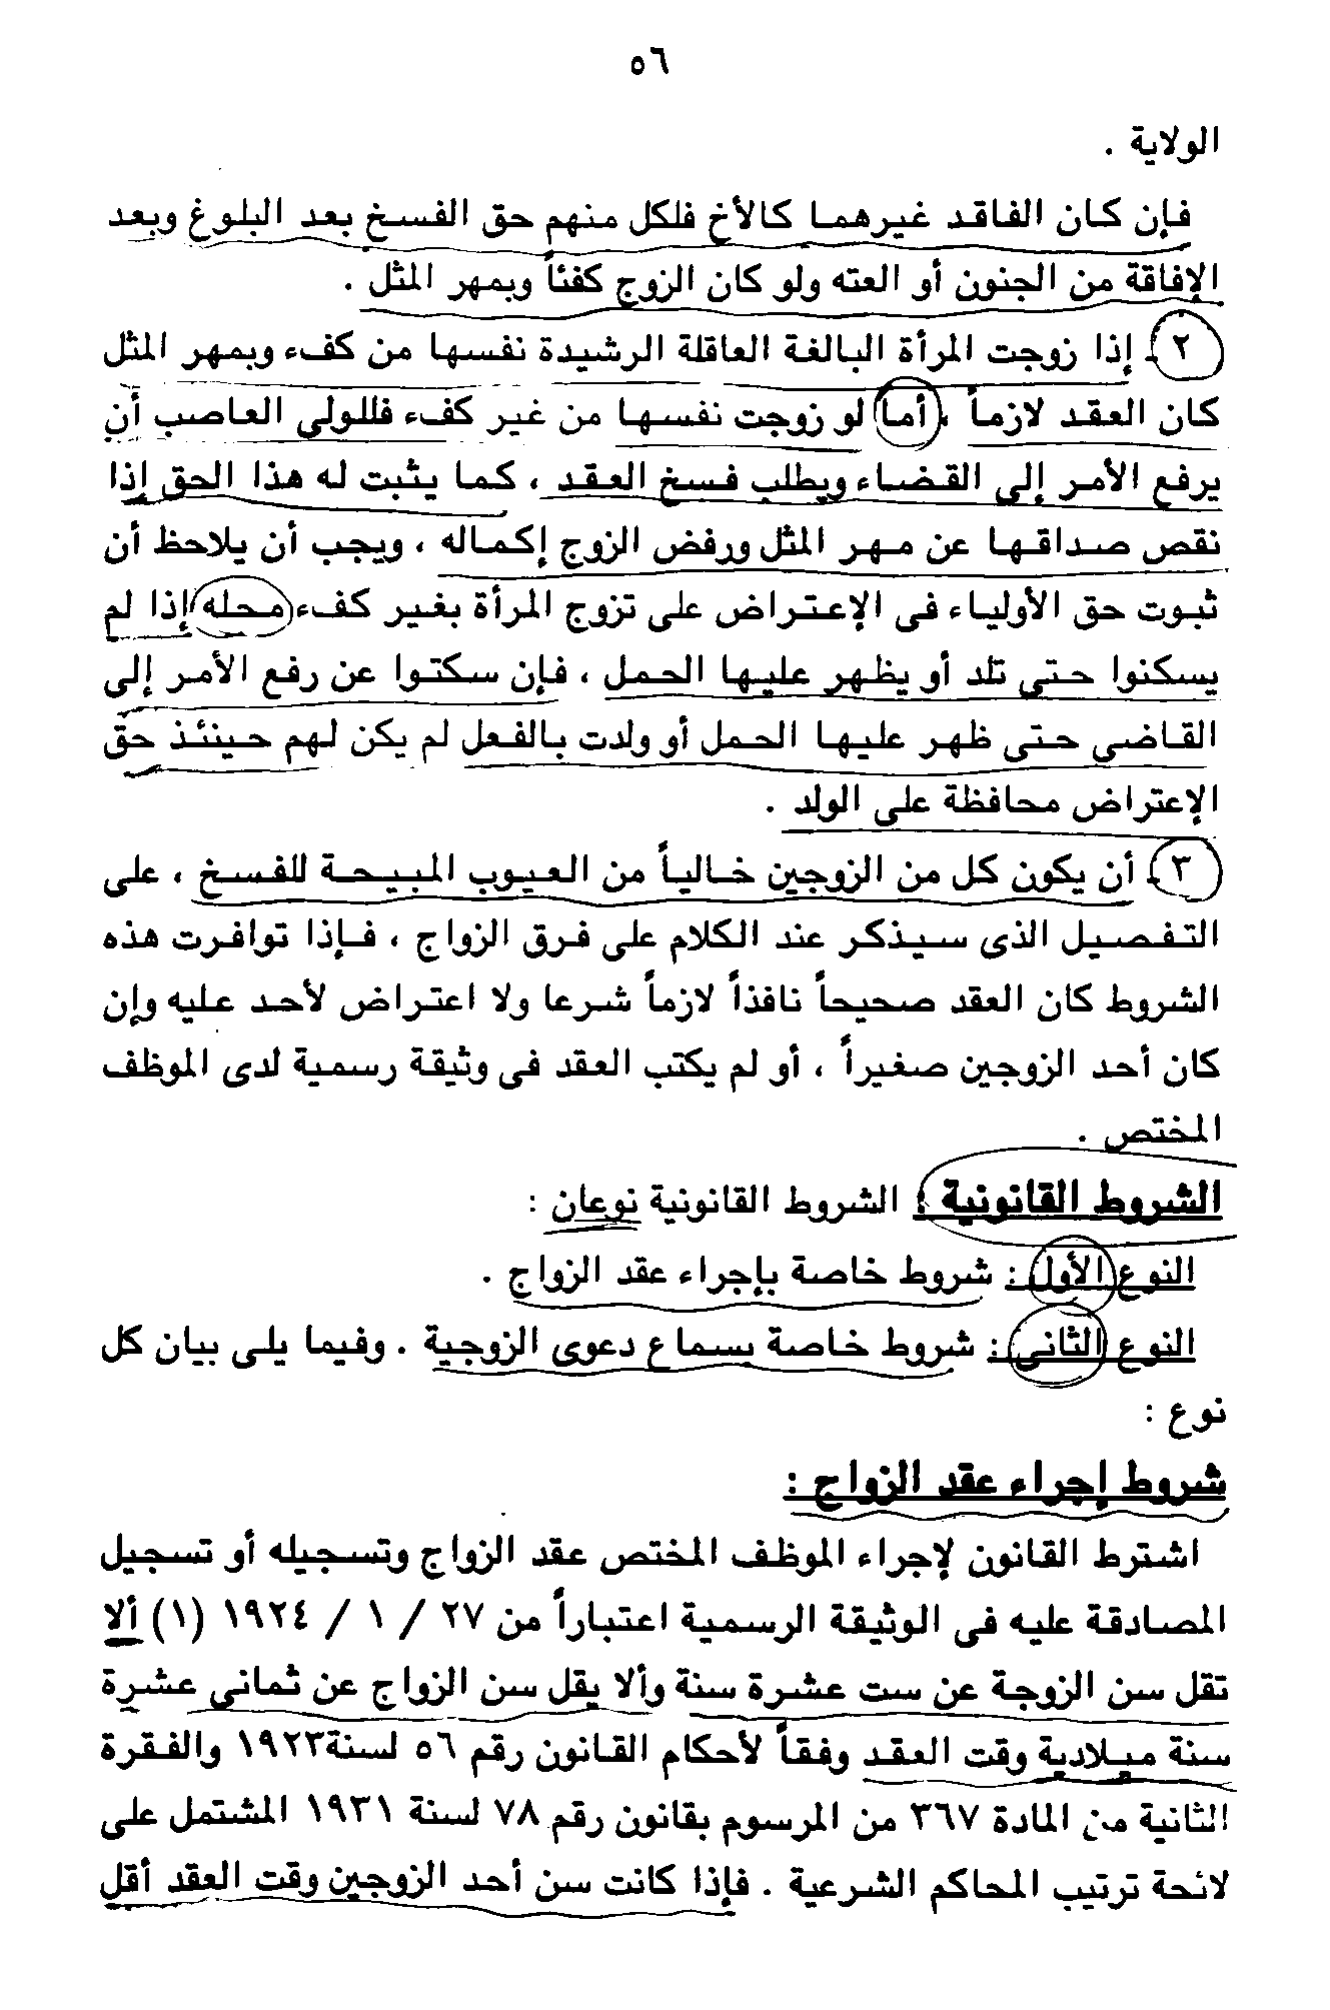 ٥٦
الولاية .
فإن كان الفاقد غيرهما كالأخ فلكل منهم حق الفسخ بعد البلوغ وبعد
الإفاقة من الجنون أو العته ولو كان الزوج كفئاً وبمهر المثل .
٢ـ إذا زوجت المرأة البالغة العاقلة الرشيدة نفسها من كفء وبمهر المثل
كان العقد لازماً ، أما لو زوجت نفسها من غير كفء فللولى العاصب أن
يرفع الأمر إلى القضاء ويطلب فسخ العقد ، كما يثبت له هذا الحق إذا
نقص صداقها عن مهر المثل ورفض الزوج إكماله ، ويجب أن يلاحظ أن
ثبوت حق الأولياء فى الإعتراض على تزوج المرأة بغير كفء محله إذا لم
يسكنوا حتى تلد أو يظهر عليها الحمل ، فإن سكتوا عن رفع الأمر إلى
القاضى حتى ظهر عليها الحمل أو ولدت بالفعل لم يكن لهم حينئذ حق
الإعتراض محافظة على الولد .
٣ـ أن يكون كل من الزوجين خالياً من العيوب المبيحة للفسخ ، على
التفصيل الذى سيذكر عند الكلام على فرق الزواج ، فإذا توافرت هذه
الشروط كان العقد صحيحاً نافذاً لازماً شرعا ولا اعتراض لأحد عليه وإن
كان أحد الزوجين صغيراً ، أو لم يكتب العقد فى وثيقة رسمية لدى الموظف
المختص .
الشروط القانونية : الشروط القانونية نوعان :
النوع الأول : شروط خاصة بإجراء عقد الزواج .
النوع الثانى : شروط خاصة بسماع دعوى الزوجية . وفيما يلى بيان كل
نوع :
شروط إجراء عقد الزواج :
اشترط القانون لإجراء الموظف المختص عقد الزواج وتسجيله أو تسجيل
المصادقة عليه فى الوثيقة الرسمية اعتباراً من ٢٧ / ١ / ١٩٢٤ (١) ألا
تقل سن الزوجة عن ست عشرة سنة وألا يقل سن الزواج عن ثمانى عشرة
سنة ميلادية وقت العقد وفقاً لأحكام القانون رقم ٥٦ لسنة١٩٢٣ والفقرة
الثانية من المادة ٣٦٧ من المرسوم بقانون رقم ٧٨ لسنة ١٩٣١ المشتمل على
لائحة ترتيب المحاكم الشرعية . فإذا كانت سن أحد الزوجين وقت العقد أقل